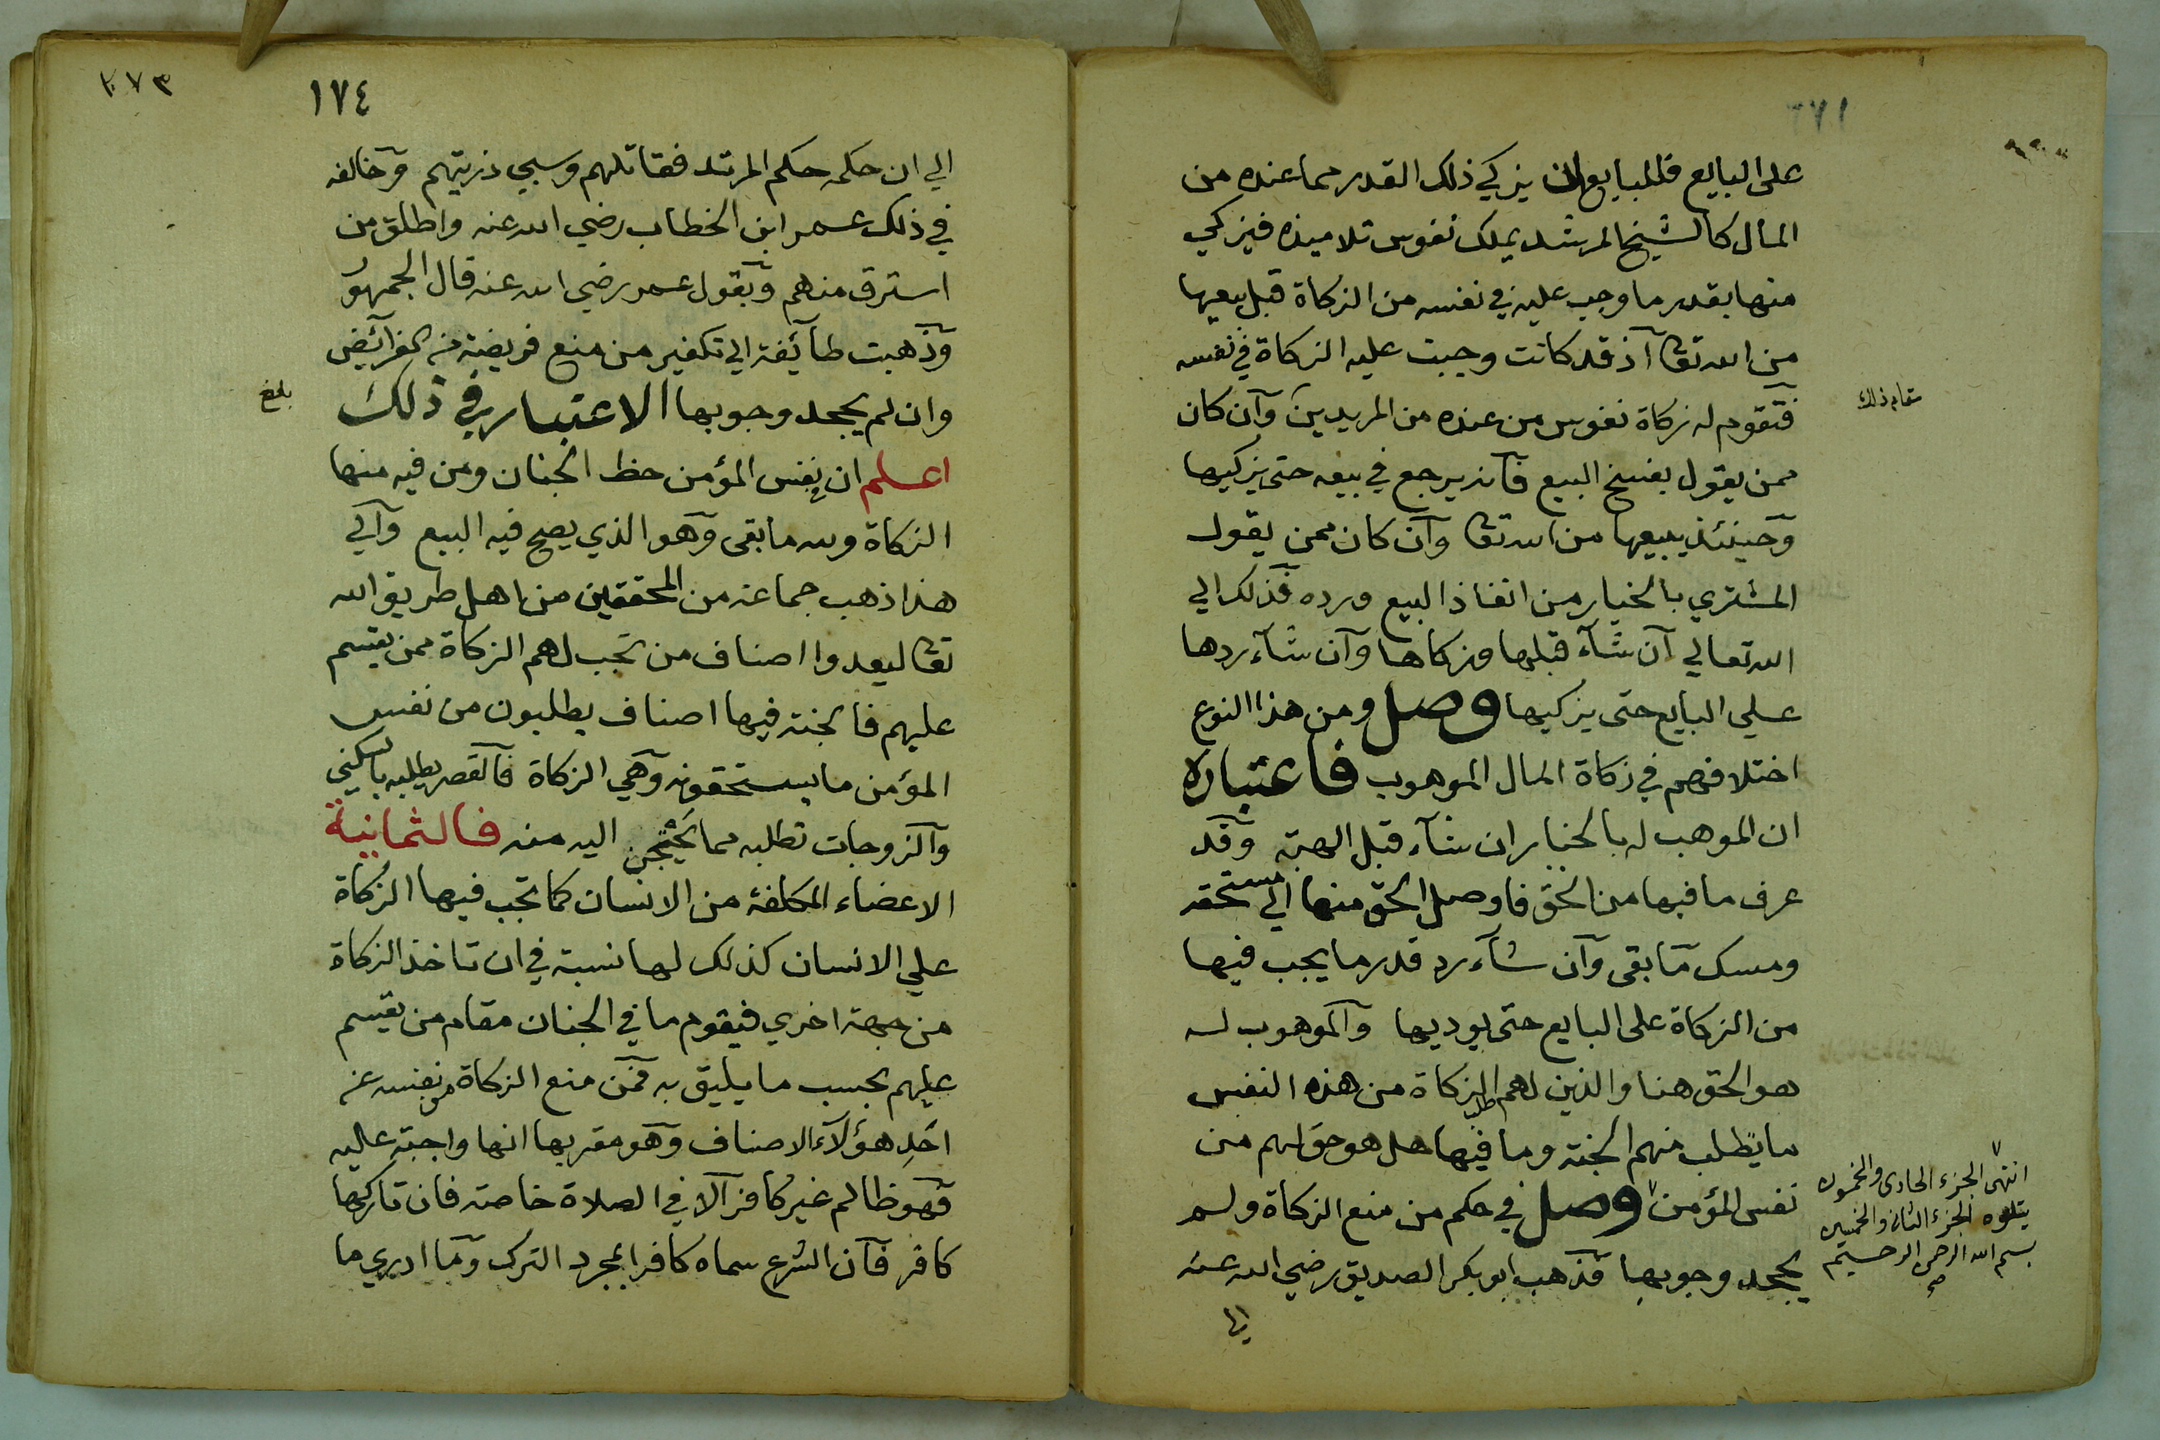 على البايع فللبايع ان يزكي ذلك القدر مما عنده من
المال كالشيخ المرشد يملك نفوس تلاميذه فيزكي
منها بقدر ما وجب عليه في نفسه من الزكاة قبل بيعها
من الله تعا آذ قد كانت وجبت عليه الزكاة في نفسه
فتقوم له زكاة نفوس من عنده من المريدين وآن كان
مقام ذلك
ممن يقول بفسخ البيع فآنه يرجع في بيعه حتى يزكيها
وحينئذ يبيعها من الله تعا وآن كان ممن يقول
المشتري بالخيار من انفاذ البيع ورده فذلك الي
الله تعالي آن شآء قبلها وزكاها وآن شآء ردها
علي البايع حتى يزكيها وصل ومن هذا النوع
اختلافهم في زكاة المال الموهوب فاعتباره
ان الموهب له بالخيار ان شآء قبل الهبة وقد
عرف ما فيها من الحق فاوصل الحق منها الي مستحقه
ومسك مآ بقى وآن شآء رد قدر ما يجب فيها
من الزكاة على البايع حتى يوديها وآلموهوب له
هو الحق هنا والذين لهم الزكاة من هذه النفس
ما يطلب منهم الجنة وما فيها هل هو حق لهم من
طلب
نفس المؤمن وصل في حكم من منع الزكاة ولم
يجحد وجوبها فذهب ابو بكر الصديق رضي الله عنه
انتهى الجزء الحادى والخمسون
يتلوه الجزء الثانى والخمسين
بسم الله الرحمن الرحيم
١٧٤
الي ان حكمه حكم المرتد فقاتلهم وسبي ذريتهم وخالفه
في ذلك عمر ابن الخطاب رضي الله عنه واطلق من
استرق منهم وبقول عمر رضي الله عنه قال الجمهور
وذهبت طآئفة الي تكفير من منع فريضة من الفرآئض
وان لم يجحد وجوبها الاعتبار في ذلك
بلغ
اعلم ان نفس المؤمن حظ الجنان ومن فيه منها
الزكاة ولله ما بقى وهو الذي يصح فيه البيع وآلي
هذا ذهب جماعة من المحققين من اهل طريق الله
تعا ليعدوا اصناف من تجب لهم الزكاة ممن يقسم
عليهم فالجنة فيها اصناف يطلبون من نفس
المؤمن ما يستحقونه وهي الزكاة فآلقصر يطلبه بالسكني
وآلزوجات تطلبه مما يحتجن اليه منه فالثمانية
الاعضاء المكلفة من الانسان كما تجب فيها الزكاة
علي الانسان كذلك لها نسبة في ان تاخذ الزكاة
من جهة اخري فيقوم ما في الجنان مقام من تقسم
عليهم بحسب ما يليق به فمن منع الزكاة من نفسه عن
احد هؤلآء الاصناف وهو مقر بها انها واجبة عليه
فهو ظالم غير كافر آلا في الصلاة خاصة فان تاركها
كافر فآن الشرع سماه كافرا بمجرد الترك ومآ ادري ما